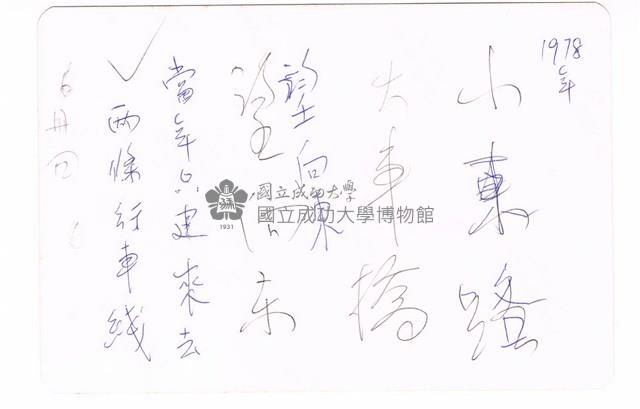 1978年
小東路
大車橋
望向東
望向東
當年只建來去
兩條行車綫
6冊
國立成功大學
國立成功大學博物館
1931